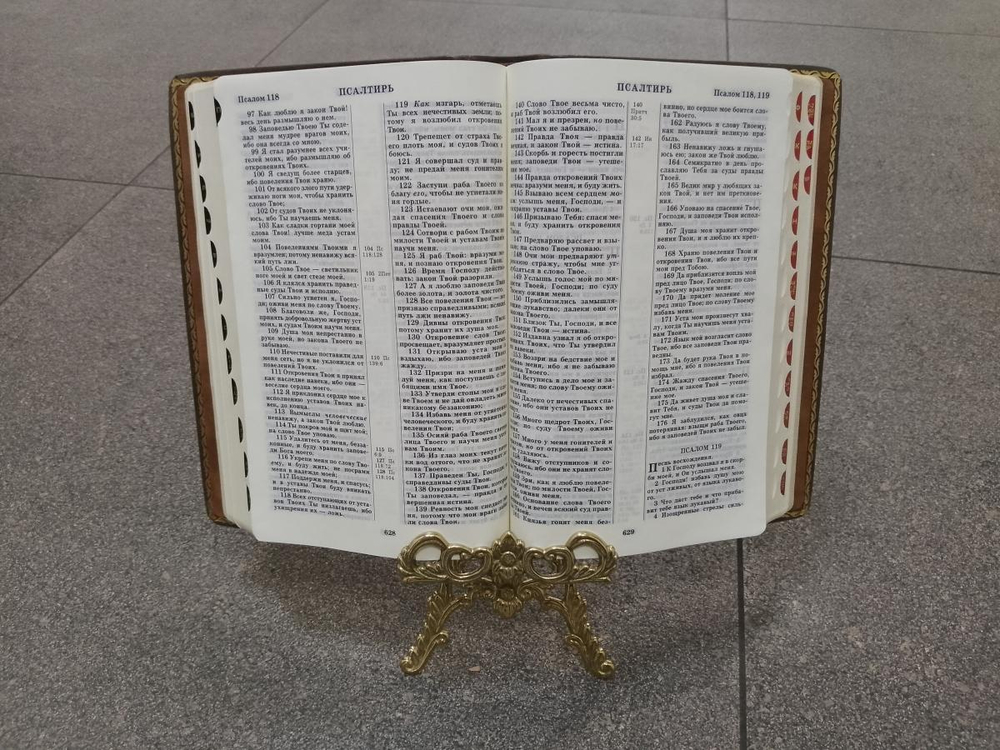 Псалом 118
ПСАЛТИРЬ
97 Как люблю я закон Твой!
весь день размышляю о нем.
98 Заповедью Твоею Ты соде-
лал меня мудрее врагов моих,
ибо она всегда со мною.
99 Я стал разумнее всех учи-
телей моих, ибо размышляю об
откровениях Твоих.
100 Я сведущ более старцев,
ибо повеления Твои храню.
101 От всякого злого пути удер-
живаю ноги мои, чтобы хранить
слово Твое;
102 От судов Твоих не уклоня-
юсь, ибо Ты научаешь меня.
103 Как сладки гортани моей
слова Твои! лучше меда устам
моим.
104 Повелениями Твоими я
вразумлен; потому ненавижу вся-
кий путь лжи.
105 Слово Твое — светильник
ноге моей и свет стезе моей.
106 Я клялся хранить правед-
ные суды Твои и исполню.
107 Сильно угнетен я, Госпо-
ди; оживи меня по слову Твоему.
108 Благоволи же, Господи,
принять добровольную жертву уст
моих, и судам Твоим научи меня.
109 Душа моя непрестанно в
руке моей, но закона Твоего не
забываю.
110 Нечестивые поставили для
меня сеть, но я не уклонился от
повелений Твоих.
111 Откровения Твои я принял
как наследие навеки, ибо они —
веселие сердца моего.
112 Я приклонил сердце мое к
исполнению уставов Твоих на-
век, до конца.
113 Вымыслы человеческие
ненавижу, а закон Твой люблю.
114 Ты покров мой и щит мой;
на слово Твое уповаю.
115 Удалитесь от меня, безза-
конные, и буду хранить запове-
ди Бога моего.
116 Укрепи меня по слову Тво-
ему, и буду жить; не посрами
меня в надежде моей.
117 Поддержи меня, и спасусь;
и в уставы Твои буду вникать
непрестанно.
118 Всех отступающих от уста-
вов Твоих Ты низлагаешь, ибо
ухищрения их — ложь.
104 Пс
118:128
119 Как изгарь, отметаешь
Ты всех нечестивых земли;
тому я возлюбил откровения
Твои.
120 Трепещет от страха
плоть моя, и судов Твоих я
боюсь.
121 Я совершал суд и
ду; не предай меня гонителям
моим.
122 Заступи раба Твоего
благу его, чтобы не угнетали
ня гордые.
123 Истаевают очи мои,
дая спасения Твоего и слова
правды Твоей.
124 Сотвори с рабом Твоим по
милости Твоей и уставам Твоим
научи меня.
125 Я раб Твой: вразуми
ня, и познаю откровения Твои.
126 Время Господу
вать: закон Твой разорили.
127 А я люблю заповеди Твои
более золота, и золота чистого.
128 Все повеления Твои —
признаю справедливыми;
путь лжи ненавижу.
129 Дивны откровения Твои;
потому хранит их душа моя.
130 Откровение слов Твоих
просвещает, вразумляет простых.
131 Открываю уста мои и
вздыхаю, ибо заповедей Твоих
жажду.
132 Призри на меня и
луй меня, как поступаешь с
бящими имя Твое.
133 Утверди стопы мои в
ве Твоем и не дай овладеть мною
никакому беззаконию;
134 Избавь меня от угнетения
человеческого, и буду хранить
веления Твои;
135 Осияй раба Твоего
лица Твоего и научи меня
вам Твоим.
136 Из глаз моих текут
ки вод оттого, что не хранят
кона Твоего.
137 Праведен Ты, Господи,
справедливы суды Твои.
138 Откровения Твои, которые
Ты заповедал, — правда и
вершенная истина.
139 Ревность моя снедает
ня, потому что мои враги
ли слова Твои.
628
ПСАЛТИРЬ
Псалом 118, 119
140 Слово Твое весьма чисто,
и раб Твой возлюбил его.
141 Мал я и презрен, но пове-
лений Твоих не забываю.
142 Правда Твоя — правда
вечная, и закон Твой — истина.
143 Скорбь и горесть постигли
меня; заповеди Твои — утеше-
ние мое.
144 Правда откровений Твоих
вечна: вразуми меня, и буду жить.
145 Взываю всем сердцем мо-
им: услышь меня, Господи, — и
сохраню уставы Твои.
146 Призываю Тебя: спаси ме-
ня, и буду хранить откровения
Твои.
147 Предваряю рассвет и взы-
ваю; на слово Твое уповаю.
148 Очи мои предваряют
стражу, чтобы мне уг-
лубляться в слово Твое.
149 Услышь голос мой по ми-
лости Твоей, Господи; по суду
Твоему оживи меня.
150 Приблизились замышля-
ющие лукавство; далеки они от
закона Твоего.
151 Близок Ты, Господи, и все
заповеди Твои — истина.
152 Издавна узнал я об откро-
вениях Твоих, что Ты утвердил
их навеки.
153 Воззри на бедствие мое и
избавь меня, ибо я не забываю
закона Твоего.
154 Вступись в дело мое и за-
щити меня; по слову Твоему ожи-
ви меня.
155 Далеко от нечестивых спа-
сение, ибо они уставов Твоих не
ищут.
156 Много щедрот Твоих, Гос-
поди; по суду Твоему оживи
меня.
157 Много у меня гонителей и
врагов, но от откровений Твоих
я не удаляюсь.
158 Вижу отступников, и со-
крушаюсь, ибо они не хранят сло-
ва Твоего.
159 Зри, как я люблю повеле-
ния Твои; по милости Твоей, Гос-
поди, оживи меня.
160 Основание слова Твоего
истинно, и вечен всякий суд прав-
ды Твоей.
161 Князья гонят меня без-
140
Притч
30:5
142 Ин
17:17
винно, но сердце мое боится сло-
ва Твоего.
162 Радуюсь я слову Твоему,
как получивший великую при-
быль.
163 Ненавижу ложь и гнуша-
юсь ею; закон же Твой люблю.
164 Семикратно в день про-
славляю Тебя за суды правды
Твоей.
165 Велик мир у любящих за-
кон Твой, и нет им преткнове-
ния.
166 Уповаю на спасение Твое,
Господи, и заповеди Твои испол-
няю.
167 Душа моя хранит откро-
вения Твои, и я люблю их креп-
ко.
168 Храню повеления Твои и
откровения Твои, ибо все пути
мои пред Тобою.
169 Да приблизится вопль мой
пред лицо Твое, Господи; по сло-
ву Твоему вразуми меня.
170 Да придет моление мое
пред лицо Твое; по слову Твоему
избавь меня.
171 Уста мои произнесут хва-
лу, когда Ты научишь меня уста-
вам Твоим.
172 Язык мой возгласит слово
Твое, ибо все заповеди Твои пра-
ведны.
173 Да будет рука Твоя в по-
мощь мне, ибо я повеления Твои
избрал.
174 Жажду спасения Твоего,
Господи, и закон Твой — утеше-
ние мое.
175 Да живет душа моя и сла-
вит Тебя, и суды Твои да помо-
гут мне.
176 Я заблудился, как овца
потерянная: взыщи раба Твоего,
ибо я заповедей Твоих не забыл.
ПСАЛОМ 119
Песнь восхождения.
1 К Господу воззвал я в скор-
би моей, и Он услышал меня.
2 Господи! избавь душу мою
от уст лживых, от языка лукаво-
го.
3 Что даст тебе и что приба-
вит тебе язык лукавый?
4 Изощренные стрелы силь-
629